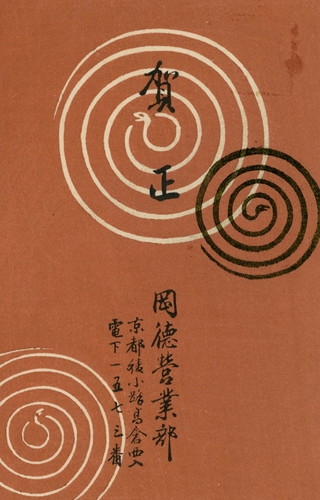 賀正
岡徳營業部
京都綾小路烏倉西入
電下一五七三番